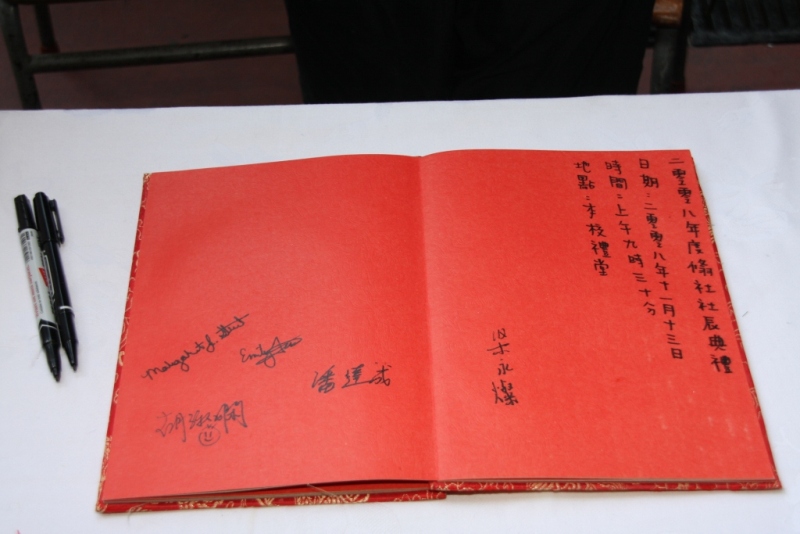 二零零八年度社社長典禮
日期：二零零八年十一月十三日
時間：上午九時三十分
地點：本校禮堂
梁永燦
Emily